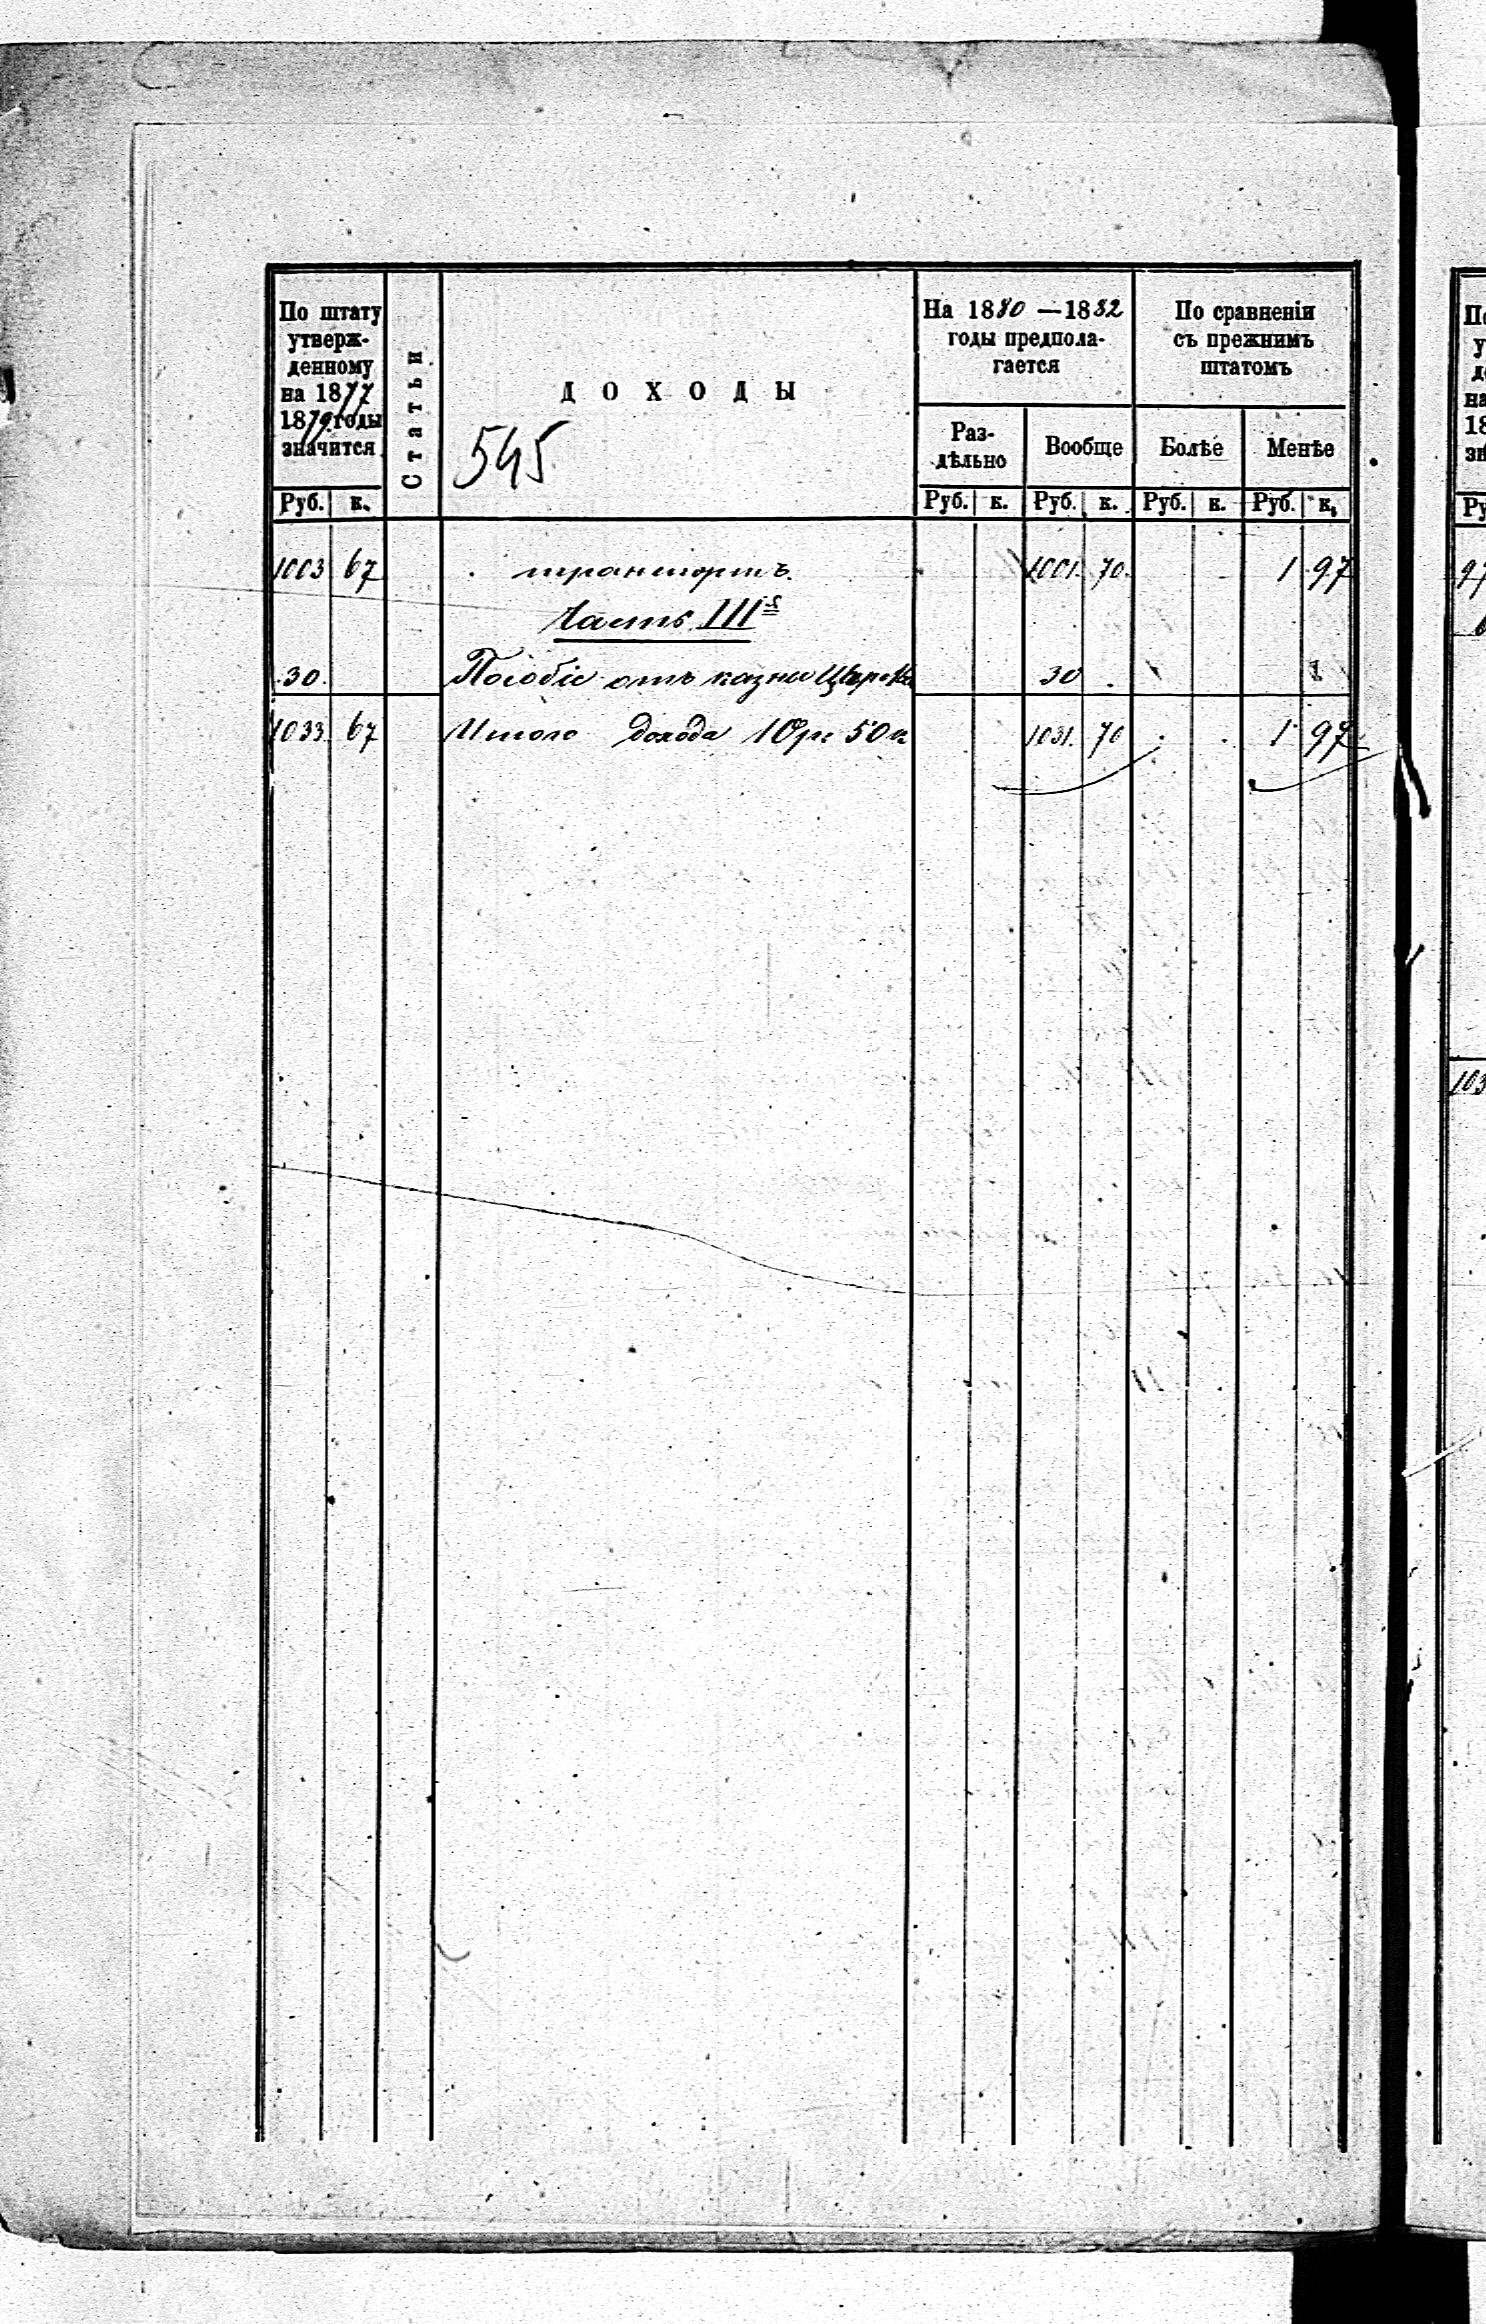 По штату
утверж-
денному
на 1877
1879 годы
значится
Статьи
ДОХОДЫ
545
На 1880 — 1882
годы предпола-
гается
По сравненіи
съ прежнимъ
штатомъ
Раз-
дѣльно
Вообще
Болѣе
Менѣе
Руб. к. Руб. к. Руб. к. Руб. к. Руб. к.
1003 67 транспортъ. 1001. 70. 1 97
Часть III
30. Пособіе отъ казны 30
1033. 67 Итого дохода 1031. 70 1 97